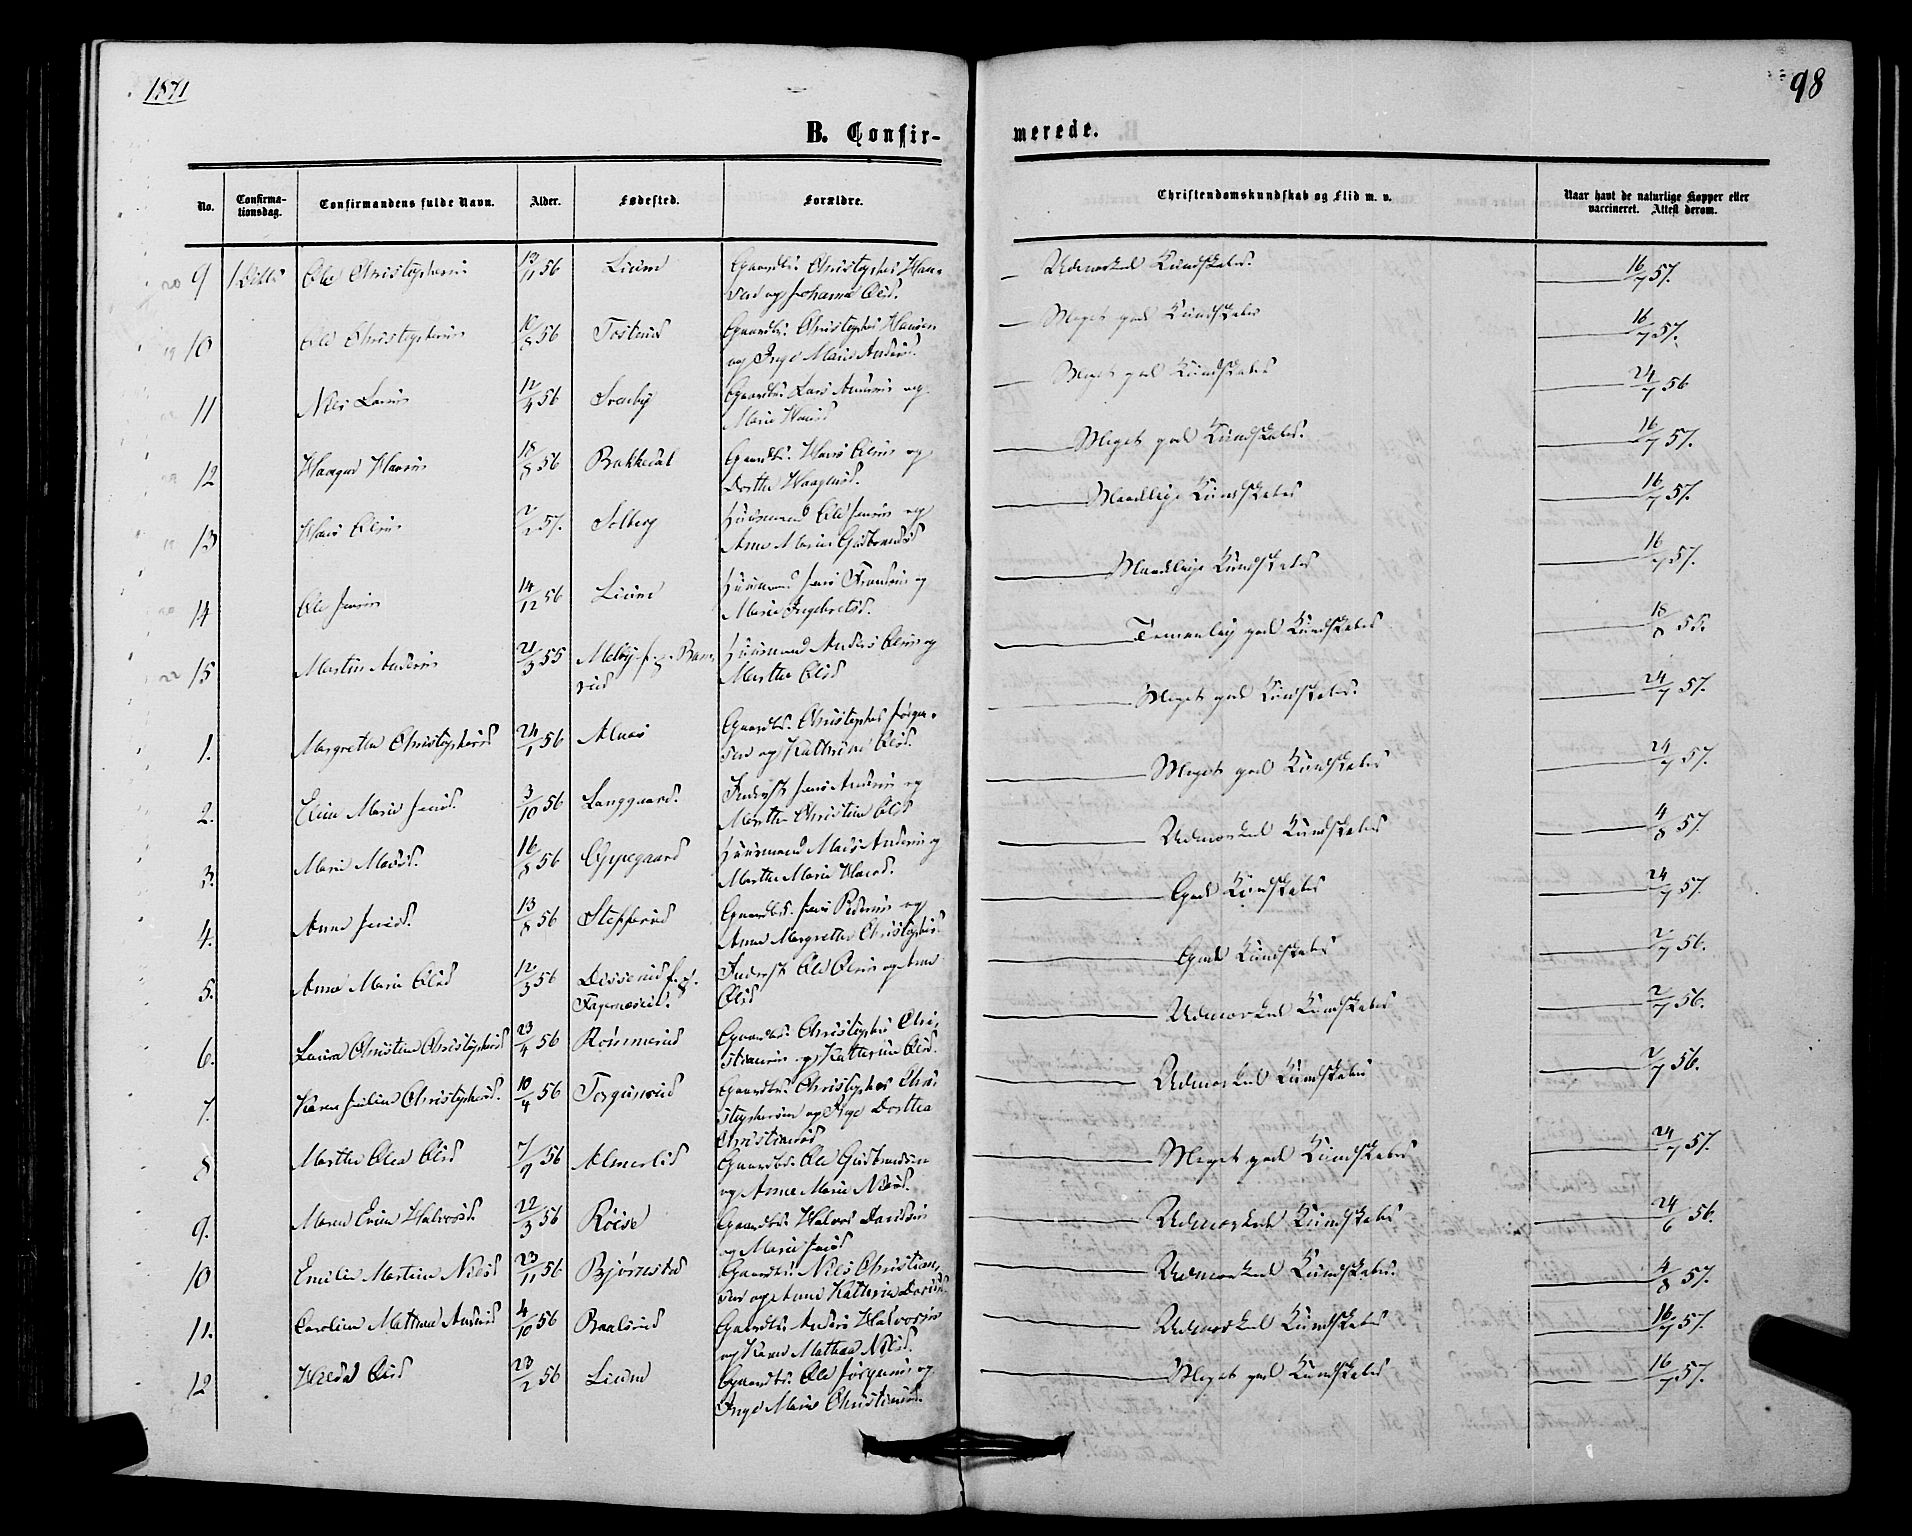 1871
98
B. Confir-
merede.
No. Confirma-tionsdag. Confirmandens fulde Navn. Alder. Fødested. Forældre.
Christendomskundskab og Flid m. v. Naar havt de naturlige Kopper eller vaccineret. Attest derom.
9 Ole Christophersen 13/11 56 Lium Gaardbr. Christopher Han-
sen og Johanne Olsd. Udmærket Kundskaber. 16/7 57.
10 Ole Christophersen 10/8 56 Gaardbr. Christopher Hansen
og Inge Marie Andersd. Meget god Kundskaber 16/7 57.
11 Niels Larsen 12/4 56 Gaardbr. Lars Andersen og
Marie Hansd. Meget god Kundskaber 24/7 56
12 Haagen Hansen 18/8 56 Gaardbr. Hans Olsen og
Dorthe Haagensd. Meget god Kundskaber. 16/7 57.
13 Hans Olsen 2/2 57. Solberg Huusmand Ole Jensen og
Anne Marie Gudbrandsd. Maadelige Kundskaber 16/7 57.
14 Ole Jensen 14/12 56 Lium Huusmand Jens Frandsen og
Marie Ingebretsd. Maadelige Kundskaber 16/7 57.
15 Martin Andersen 21/3 55 Huusmand Anders Olsen og
Marthe Olsd. Temmelig god Kundskaber 18/8 55.
1. Margrethe Christophersd. 24/1 56 Alnæs Gaardbr. Christopher Jørgen-
sen og Kathrine Olsd. Meget god Kundskaber. 24/7 57.
2. Eline Marie Jensd. 3/10 56 Langgaard. Inderst Jens Andersen og
Marthe Christine Olsd Meget god Kundskaber 24/7 57.
3. Marie Madsd. 16/8 56 Oppegaard Huusmand Mads Andersen og
Marthe Marie Hansd. Udmærket Kundskaber 4/8 57.
4. Anne Jensd. 13/8 56 Stefferud Gaardbr. Jens Pedersen og
Anne Margrethe Christophersd. God Kundskaber 24/7 57.
5. Anne Marie Olsd 12/3 56 Inderst Ole Olsen og Anne
Olsd God Kundskaber 2/7 56.
6. Christine Christophersd 23/4 56 Rømmerud Gaardbr. Christopher Chri-
stiansen og Kathrine Olsd. Udmærket Kundskaber 2/7 56.
7. Karen Juline Christophersd. 10/4 56 Torgunrud Gaardbr. Christopher Chri-
stophersen og Inge Dorthea
Christiansd Udmærket Kundskaber 2/7 56.
8 Marthe Olea Olsd 7/9 56 Almerlid Gaardbr. Ole Gudbrandsen
og Anne Marie Nielsd. Meget god Kundskaber 24/7 57.
9. Maren Eline Halvorsd. 22/3 56 Røise Gaardbr. Halvor Danielsen
og Marie Jensd Udmærket Kundskaber 24/6 56.
10 Emilie Martine Nielsd 23/11 56 Bjørnestad Gaardbr. Niels Christian-
sen og Anne Kathrine Larsd. Udmærket Kundskaber. 4/8 57.
11. Caroline Mathea Andersd 4/10 56 Baalsrud Gaardbr. Anders Halvorsen
og Karen Mathea Nielsd. Udmærket Kundskaber 16/7 57.
12 Olsd 23/2 56 Lium Gaardbr. Ole Jørgensen og
Inge Marie Christiansd. Meget god Kundskaber 16/7 57.